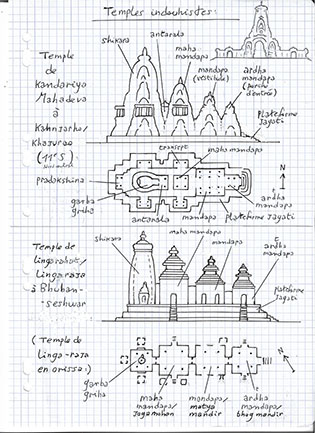 Temples indouhistes:
antarala
shikara
maha
mandapa
mandapa
(vestibule)
ardha
mandapa
(porche
d'entrée)
plateforme
jagati
Temple
de
Kandariya
Mahadeva
à
Khajurao
(11°S)
transept
maha mandapa
N
pradakshina
garba
griha
antarala
mandapa
plateforme jagati
ardha
mandapa
Temple de
Lingaraja
à Bhuban-
seshwar
shikara
maha mandapa
mandapa
E
ardha
mandapa
plateforme
jagati
(Temple de
Linga-raja
en orissa)
N
garba
griha
maha
mandapa/
jagamohan
mandapa/
natya
mandir
ardha
mandapa/
bhog mandir